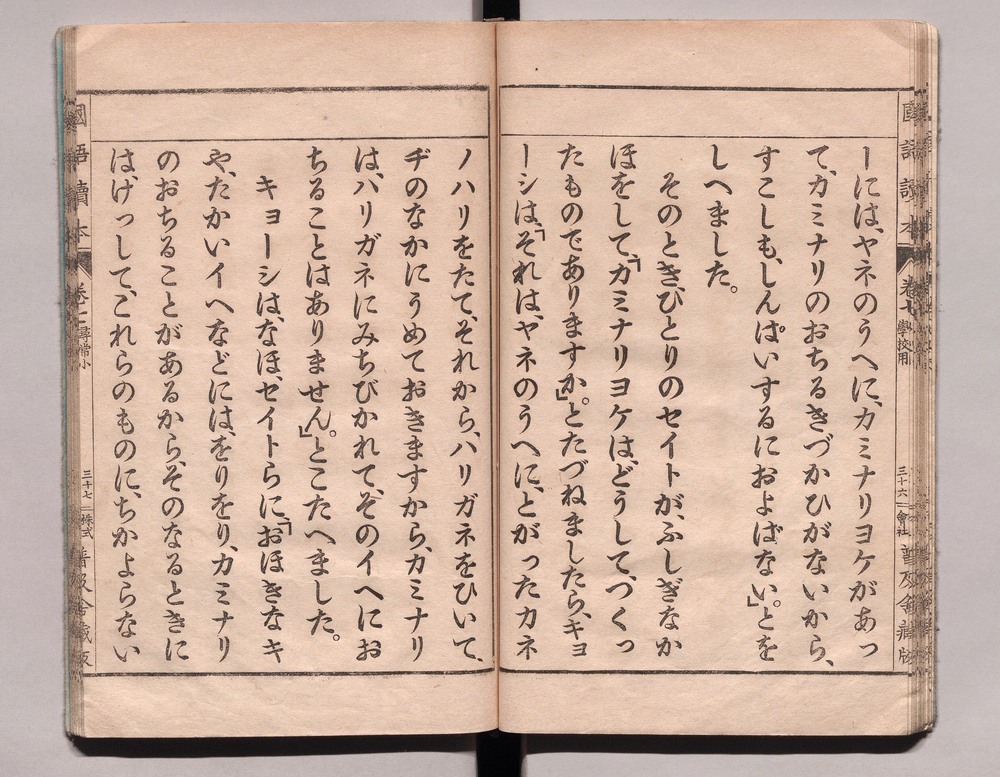 ーには、ヤネのうへに、カミナリヨケがあっ
て、カミナリのおちるきづかひがないから、
すこしも、しんぱいするにおよばない。」とを
しへました。
そのとき、ひとりのセイトが、ふしぎなか
ほをして、「カミナリヨケは、どうして、つくっ
たものでありますか。」とたづねましたら、キョ
ーシは、「それは、ヤネのうへに、とがったカネ
ノハリをたて、それから、ハリガネをひいて、
ヂのなかにうめておきますから、カミナリ
は、ハリガネにみちびかれて、そのイへにお
ちることはありません。」とこたへました。
キョーシは、なほ、セイトらに、「おほきなキ
や、たかいイへなどには、をりをり、カミナリ
のおちることがあるから、そのなるときに
は、けっして、これらのものに、ちかよらない
國語讀本
尋常小
三十七
株式
普及舍藏版
卷七
學校用
三十六
會社